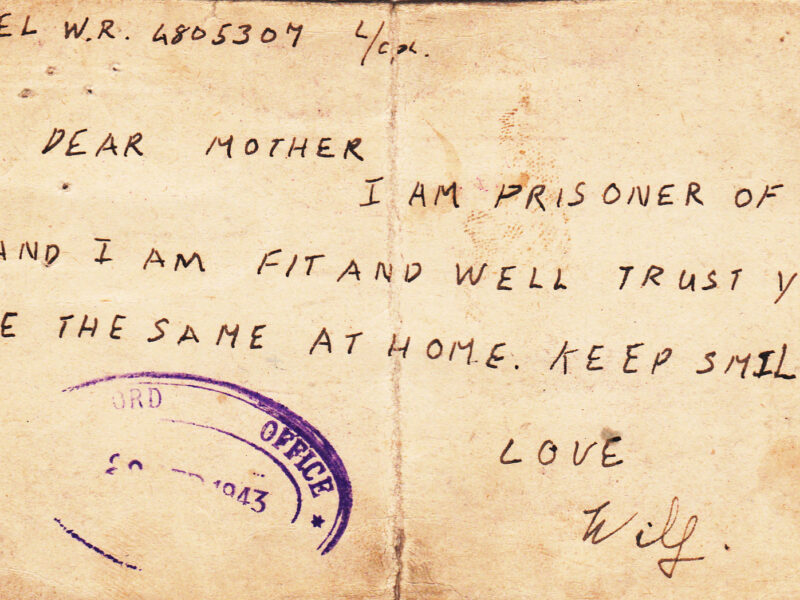 EL W.R. 4805307 L/cpl.
DEAR MOTHER
I AM PRISONER OF
AND I AM FIT AND WELL TRUST Y
E THE SAME AT HOME. KEEP SMIL
ORD OFFICE *
1943
LOVE
Wilf.